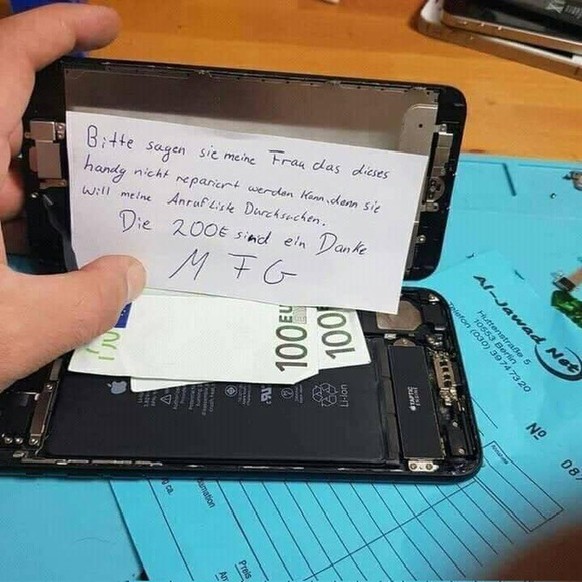 Bitte sagen sie meine Frau das dieses
handy nicht repariert werden kann, denn sie
will meine Anruf Liste Durchsuchen.
Die 200€ sind ein Danke
M F G
100 EU
100
Li-Ion
TAPTIC
ENGINE
Al-Jawad Net
Huttenstraße 5
10553 Berlin
Telefon (030) 39747320
Nº
Preis